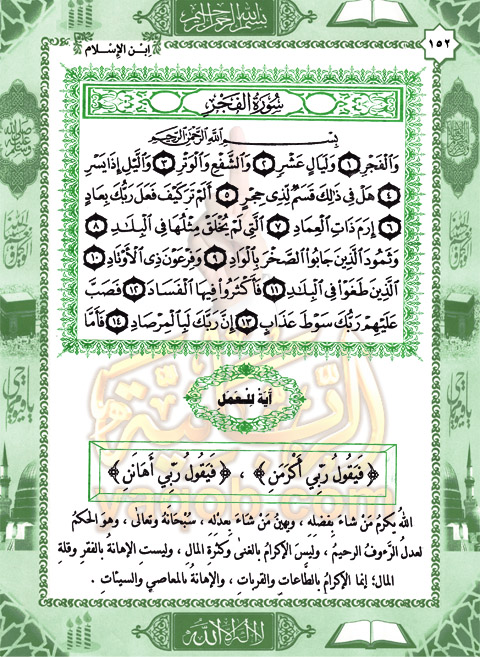 بسم الله الرحمن الرحيم
١٥٢
ابن الإسلام
سُورَةُ الفَجْرِ
بِسْمِ اللَّهِ الرَّحْمَٰنِ الرَّحِيمِ
وَالْفَجْرِ ١ وَلَيَالٍ عَشْرٍ ٢ وَالشَّفْعِ وَالْوَتْرِ ٣ وَاللَّيْلِ إِذَا يَسْرِ
٤ هَلْ فِي ذَٰلِكَ قَسَمٌ لِّذِي حِجْرٍ ٥ أَلَمْ تَرَ كَيْفَ فَعَلَ رَبُّكَ بِعَادٍ
٦ إِرَمَ ذَاتِ الْعِمَادِ ٧ الَّتِي لَمْ يُخْلَقْ مِثْلُهَا فِي الْبِلَادِ ٨
وَثَمُودَ الَّذِينَ جَابُوا الصَّخْرَ بِالْوَادِ ٩ وَفِرْعَوْنَ ذِي الْأَوْتَادِ ١٠
الَّذِينَ طَغَوْا فِي الْبِلَادِ ١١ فَأَكْثَرُوا فِيهَا الْفَسَادَ ١٢ فَصَبَّ
عَلَيْهِمْ رَبُّكَ سَوْطَ عَذَابٍ ١٣ إِنَّ رَبَّكَ لَبِالْمِرْصَادِ ١٤ فَأَمَّا
آيَةٌ لِلْعَمَلِ
﴿ فَيَقُولُ رَبِّي أَكْرَمَنِ ﴾ ، ﴿ فَيَقُولُ رَبِّي أَهَانَنِ ﴾
اللهُ يكرمُ مَنْ شاءَ بفضلِهِ ، ويهينُ مَنْ شاءَ بعدلِهِ ، سُبْحَانَهُ وتعالَى ، وهوَ الحكمُ
العدلُ الرَّءوفُ الرحيمُ ، وليسَ الإكرامُ بالغنَى وكثرةِ المالِ ، وليستِ الإهانةُ بالفقرِ وقلةِ
المالِ؛ إنما الإكرامُ بالطَّاعاتِ والقرباتِ ، والإهانةُ بالمعاصي والسيئاتِ .
لا إله إلا الله